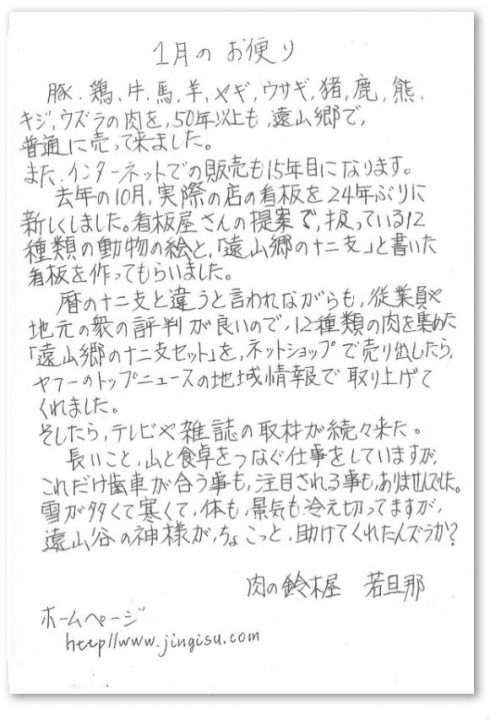 1月の お便り
豚、鶏、牛、馬、羊、ヤギ、ウサギ、猪、鹿、熊、
キジ、ウズラの肉を、50年以上も、遠山郷で、
普通に売って来ました。
また、インターネットでの販売も15年目になります。
去年の10月、実際の店の看板を24年ぶりに
新しくしました。看板屋さんの提案で、扱っている12
種類の動物の絵と、「遠山郷の十二支」と書いた
看板を作ってもらいました。
暦の十二支と違うと言われながらも、従業員や
地元の衆の評判が良いので、12種類の肉を集めた
「遠山郷の十二支セット」を、ネットショップで売り出したら、
ヤフーのトップニュースの地域情報で取り上げて
くれました。
そしたら、テレビや雑誌の取材が続々来た。
長いこと、山と食卓をつなぐ仕事をしていますが、
これだけ歯車が合う事も、注目される事も、ありませんでした。
雪が多くて寒くて、体も、景気も、冷え切ってますが、
遠山谷の神様が、ちょこっと、助けてくれたんズラか?
肉の鈴木屋 若旦那
ホームページ
http//www.jingisu.com